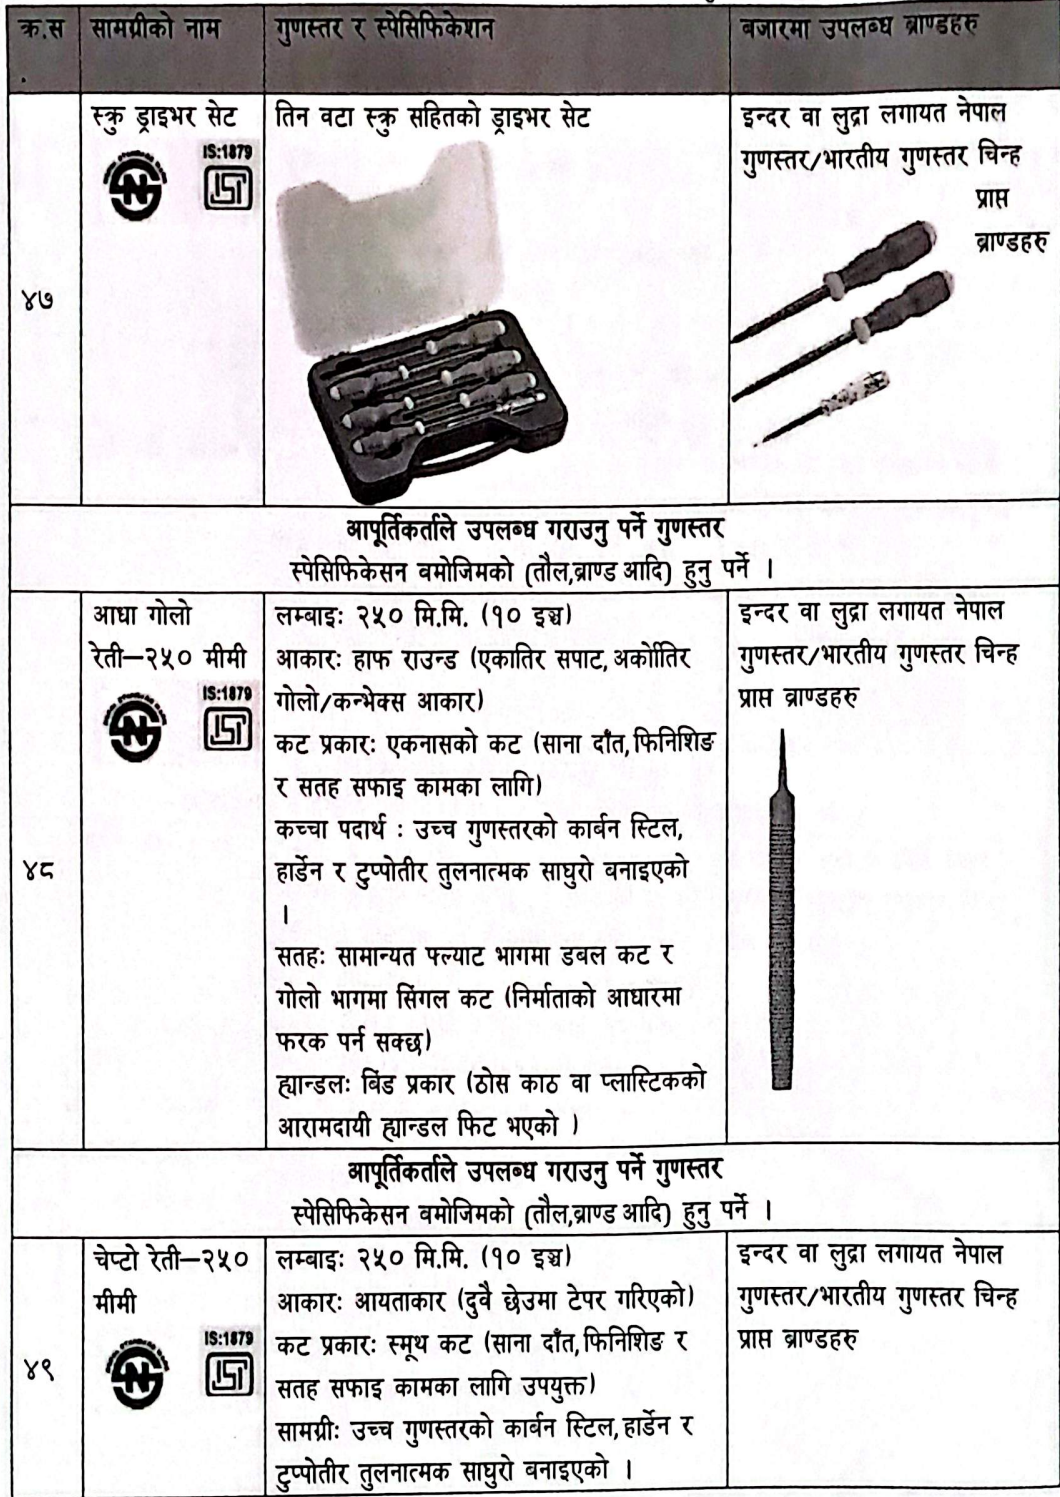 क्र.स सामग्रीको नाम गुणस्तर र स्पेसिफिकेशन बजारमा उपलब्ध ब्राण्डहरु
.
४७
स्क्रु ड्राइभर सेट
IS:1879
तिन वटा स्क्रु सहितको ड्राइभर सेट
इन्दर वा लुद्रा लगायत नेपाल
गुणस्तर/भारतीय गुणस्तर चिन्ह
प्राप्त
ब्राण्डहरु
आपूर्तिकर्ताले उपलब्ध गराउनु पर्ने गुणस्तर
स्पेसिफिकेसन वमोजिमको (तौल,ब्राण्ड आदि) हुनु पर्ने ।
४८
आधा गोलो
रेती—२५० मीमी
IS:1879
लम्बाइः २५० मि.मि. (१० इञ्च)
आकारः हाफ राउन्ड (एकातिर सपाट, अर्कोातिर
गोलो/कन्भेक्स आकार)
कट प्रकारः एकनासको कट (साना दाँत, फिनिशिङ
र सतह सफाइ कामका लागि)
कच्चा पदार्थ : उच्च गुणस्तरको कार्बन स्टिल,
हार्डेन र टुप्पोतीर तुलनात्मक साघुरो बनाइएको
।
सतहः सामान्यत फ्ल्याट भागमा डबल कट र
गोलो भागमा सिंगल कट (निर्माताको आधारमा
फरक पर्न सक्छ)
ह्यान्डलः बिंड प्रकार (ठोस काठ वा प्लास्टिकको
आरामदायी ह्यान्डल फिट भएको )
इन्दर वा लुद्रा लगायत नेपाल
गुणस्तर/भारतीय गुणस्तर चिन्ह
प्राप्त ब्राण्डहरु
आपूर्तिकर्ताले उपलब्ध गराउनु पर्ने गुणस्तर
स्पेसिफिकेसन वमोजिमको (तौल,ब्राण्ड आदि) हुनु पर्ने ।
४९
चेप्टो रेती—२५०
मीमी
IS:1879
लम्बाइः २५० मि.मि. (१० इञ्च)
आकारः आयताकार (दुवै छेउमा टेपर गरिएको)
कट प्रकारः स्मूथ कट (साना दाँत, फिनिशिङ र
सतह सफाइ कामका लागि उपयुक्त)
सामग्रीः उच्च गुणस्तरको कार्बन स्टिल, हार्डेन र
टुप्पोतीर तुलनात्मक साघुरो बनाइएको ।
इन्दर वा लुद्रा लगायत नेपाल
गुणस्तर/भारतीय गुणस्तर चिन्ह
प्राप्त ब्राण्डहरु